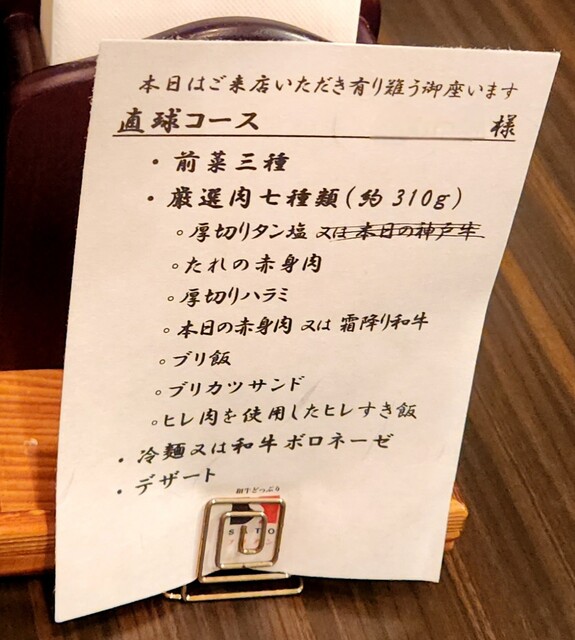 本日はご来店いただき有り難う御座います
直球コース 様
・前菜三種
・厳選肉七種類(約310g)
○厚切りタン塩 又は本日の神戸牛
○たれの赤身肉
○厚切りハラミ
○本日の赤身肉 又は 霜降り和牛
○ブリ飯
○ブリカツサンド
○ヒレ肉を使用したヒレすき飯
・冷麺又は和牛ボロネーゼ
・デザート
和牛どっぷり